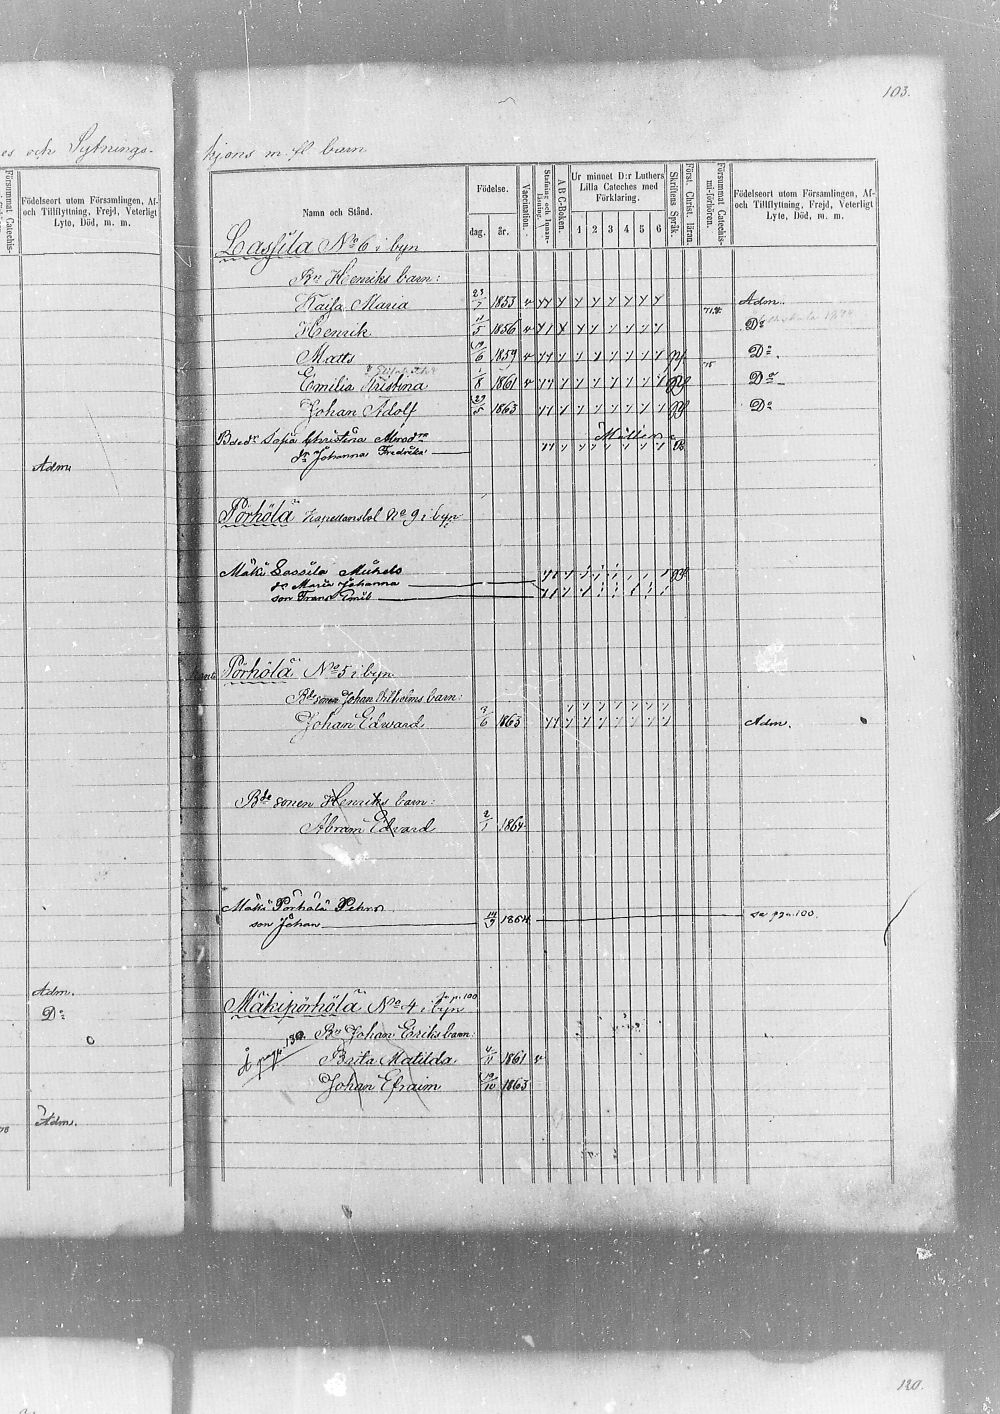 103.
es och Sytnings-
hjons m. fl. barn
Försummat Catechis-
Födelseort utom Församlingen, Af-
och Tillflyttning, Frejd, Veterligt
Lyte, Död, m. m.
Namn och Stånd.
Födelse.
dag.
år.
Vaccination.
Stafning och Innan-
läsning.
A B C-Boken.
Ur minnet D:r Luthers
Lilla Cateches med
Förklaring.
1 2 3 4 5 6
Skriftens Språk.
Förste Christ. läran.
Försummat Catechis-
mi-förhören.
Födelseort utom Församlingen, Af-
och Tillflyttning, Frejd, Veterligt
Lyte, Död, m. m.
Lassila No 6 i byn
Bn Henriks barn:
Kaisa Maria 23/7 1853 Adm.
Henrik 11/5 1856 Do
Matts 19/6 1859 Do
Emilia Kristina 1/8 1861 Do
Johan Adolf 29/5 1863 Do
Sofia Christina
dr Johanna Fredrika
Adm.
Pörhölä Kapellansbol No 9 i byn
Mäki Lassila Mickels
dr Maria Johanna
son Frans Emil
Pörhölä No 5 i byn
Bde sonen Johan Wilhelms barn:
Johan Edward 3/6 1863 Adm.
Bde sonen Henriks barn:
Abram Edvard 2/1 1864
Mäki Pörhölä Pehrs
son Johan 14/9 1864 se pga. 100.
Adm.
Do
Mäkipörhölä No 4 i byn
se p. 100
Bn Johan Eriks barn:
pag. 130.
Brita Matilda 4/11 1861
Johan Efraim 19/10 1863
Adm.
78
120.